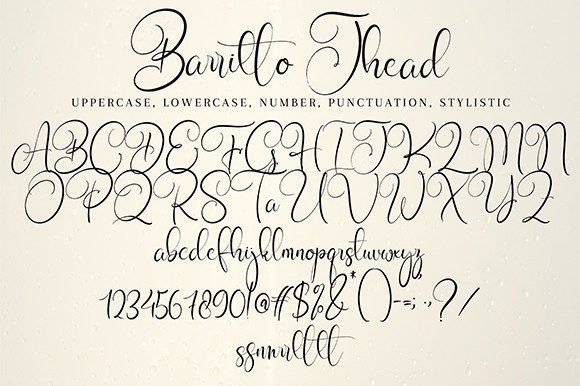 Barritto Thead
UPPERCASE, LOWERCASE, NUMBER, PUNCTUATION, STYLISTIC
ABCDEFGHIJKLMN
OPQRSTaUVWXYZ
abcdefghijklmnopqrstuvwxyz
1234567890!@#$%&*()-=;.,?/